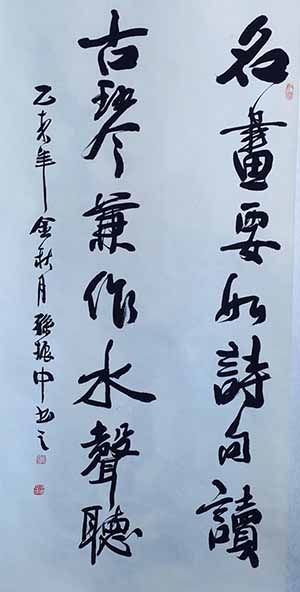 名畫要如詩句讀
古琴兼作水聲聽
乙未年金秋月張振中书之